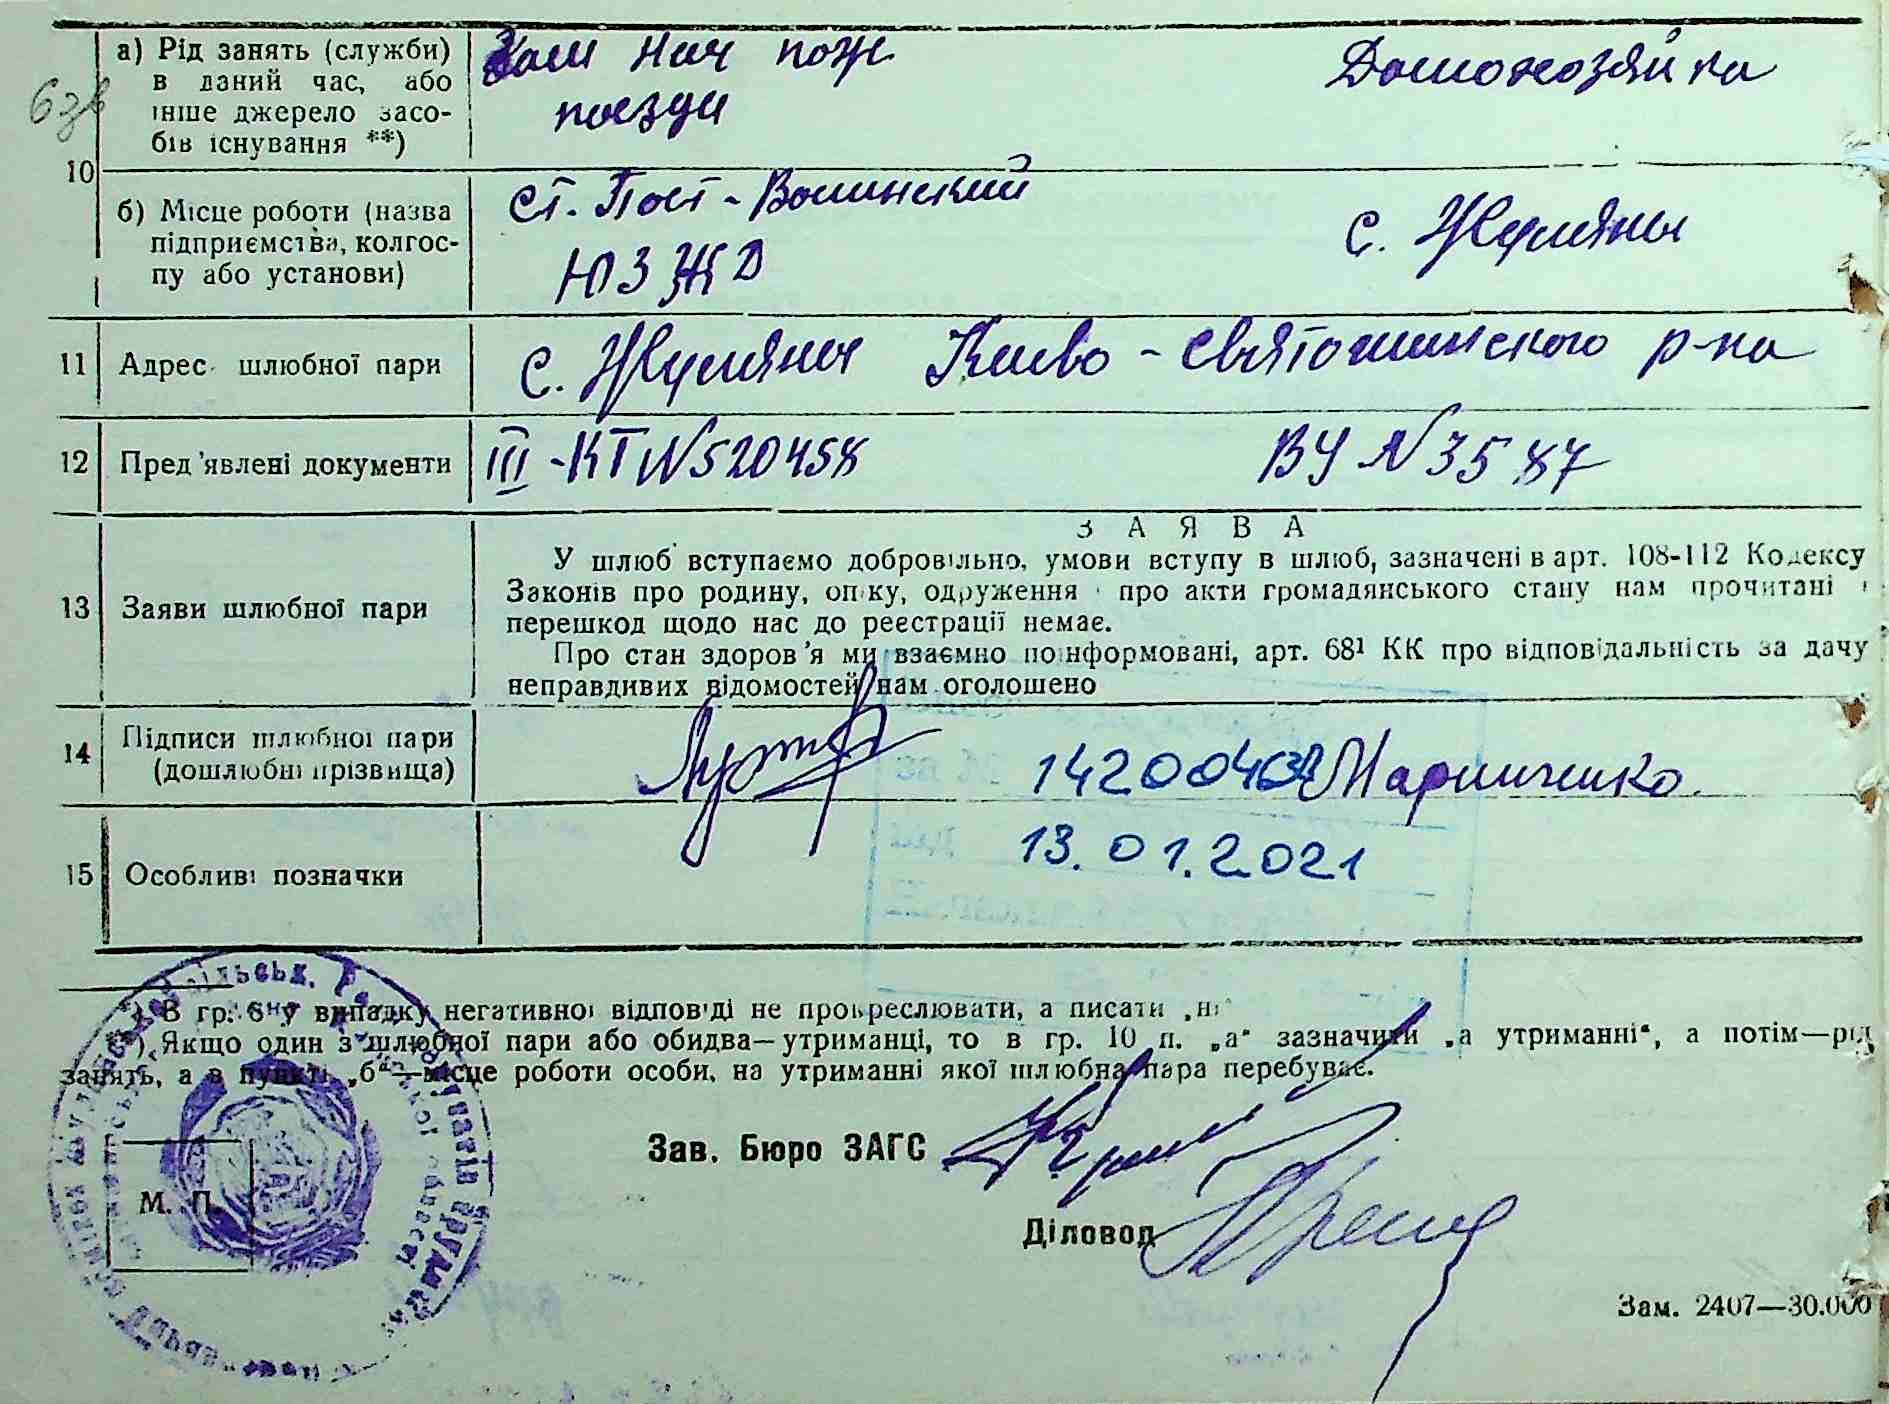 а) Рід занять (служби) в даний час, або інше джерело засобів існування **)
Зам Нач пож поезда
Домохозяйка
10
б) Місце роботи (назва підприємства, колгоспу або установи)
ст. Пост-Волинский
ЮЗЖД
с. Жуляны
11 Адрес шлюбної пари
с. Жуляны Киево-Святошинского р-на
12 Пред'явлені документи
III-КТ N520458
ВУ N 35 87
13 Заяви шлюбної пари
ЗАЯВА
У шлюб вступаємо добровільно, умови вступу в шлюб, зазначені в арт. 108-112 Кодексу
Законів про родину, опіку, одруження і про акти громадянського стану нам прочитані і
перешкод щодо нас до реєстрації немає.
Про стан здоров'я ми взаємно поінформовані, арт. 68¹ КК про відповідальність за дачу
неправдивих відомостей нам оголошено
14 Підписи шлюбної пари (дошлюбні прізвища)
Марниченко
13.01.2021
15 Особливі позначки
*) В гр. 6 у випадку негативної відповіді не прокреслювати, а писати „ні"
**) Якщо один з шлюбної пари або обидва—утриманці, то в гр. 10 п. „а" зазначити „а утриманні", а потім—рід
занять, а в пункті „б"—місце роботи особи, на утриманні якої шлюбна пара перебуває.
М. П.
Зав. Бюро ЗАГС
Діловод
Зам. 2407—30.000